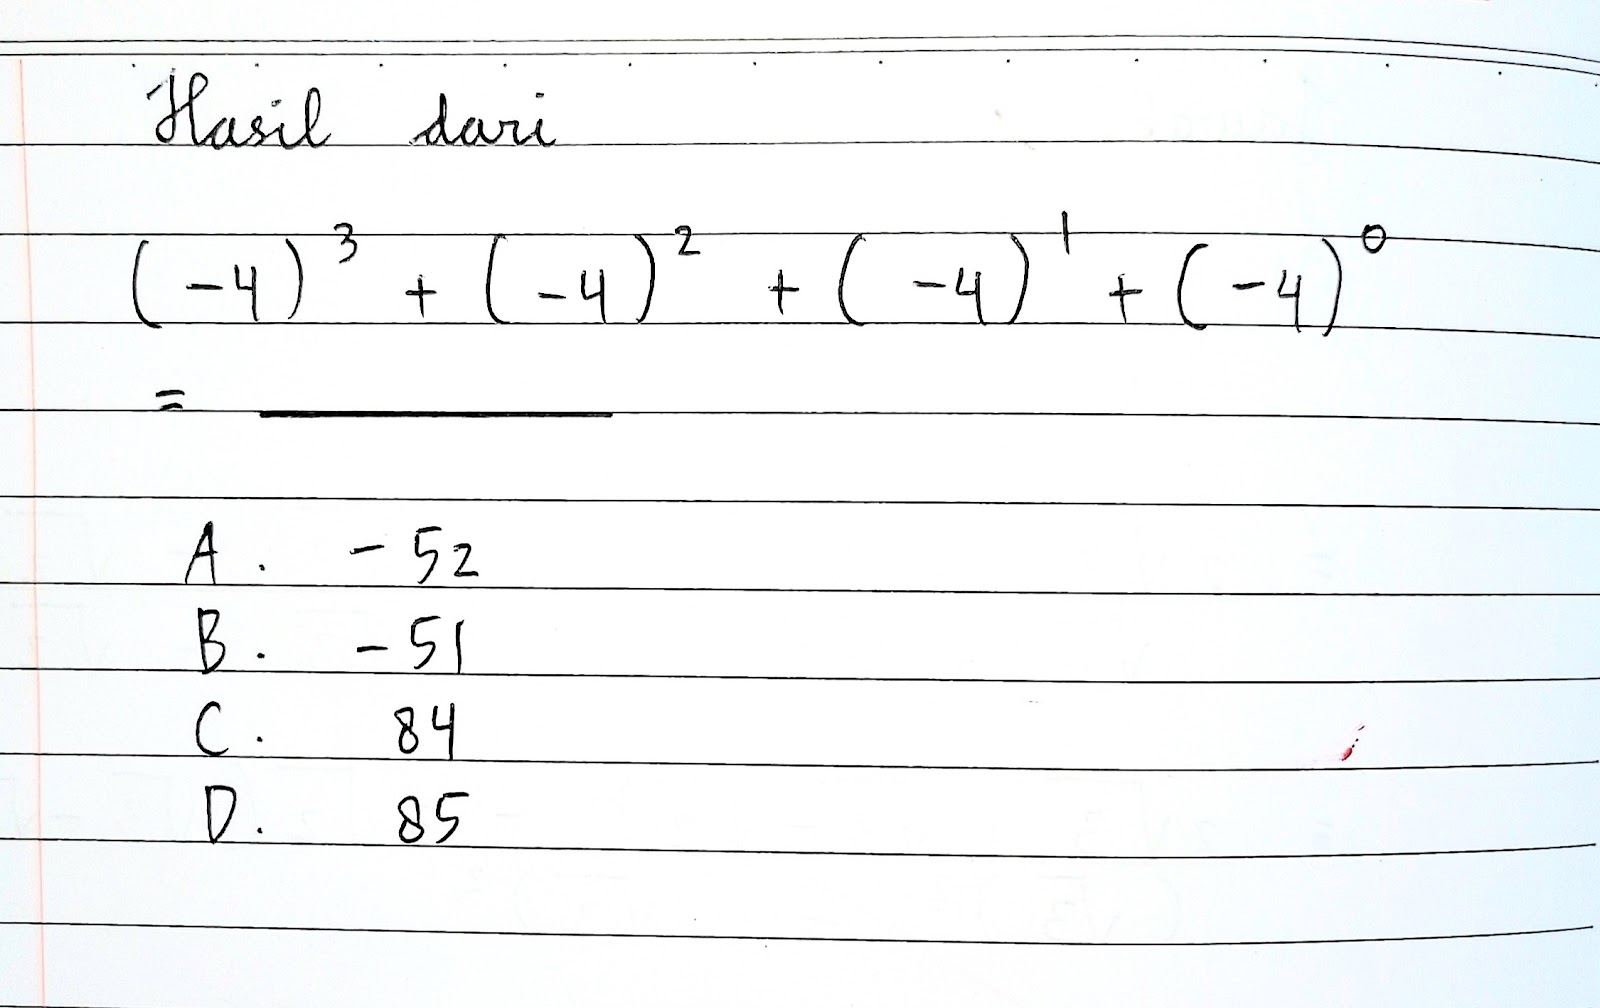 Hasil dari
(-4)³ + (-4)² + (-4)¹ + (-4)⁰
= ________
A. -52
B. -51
C. 84
D. 85